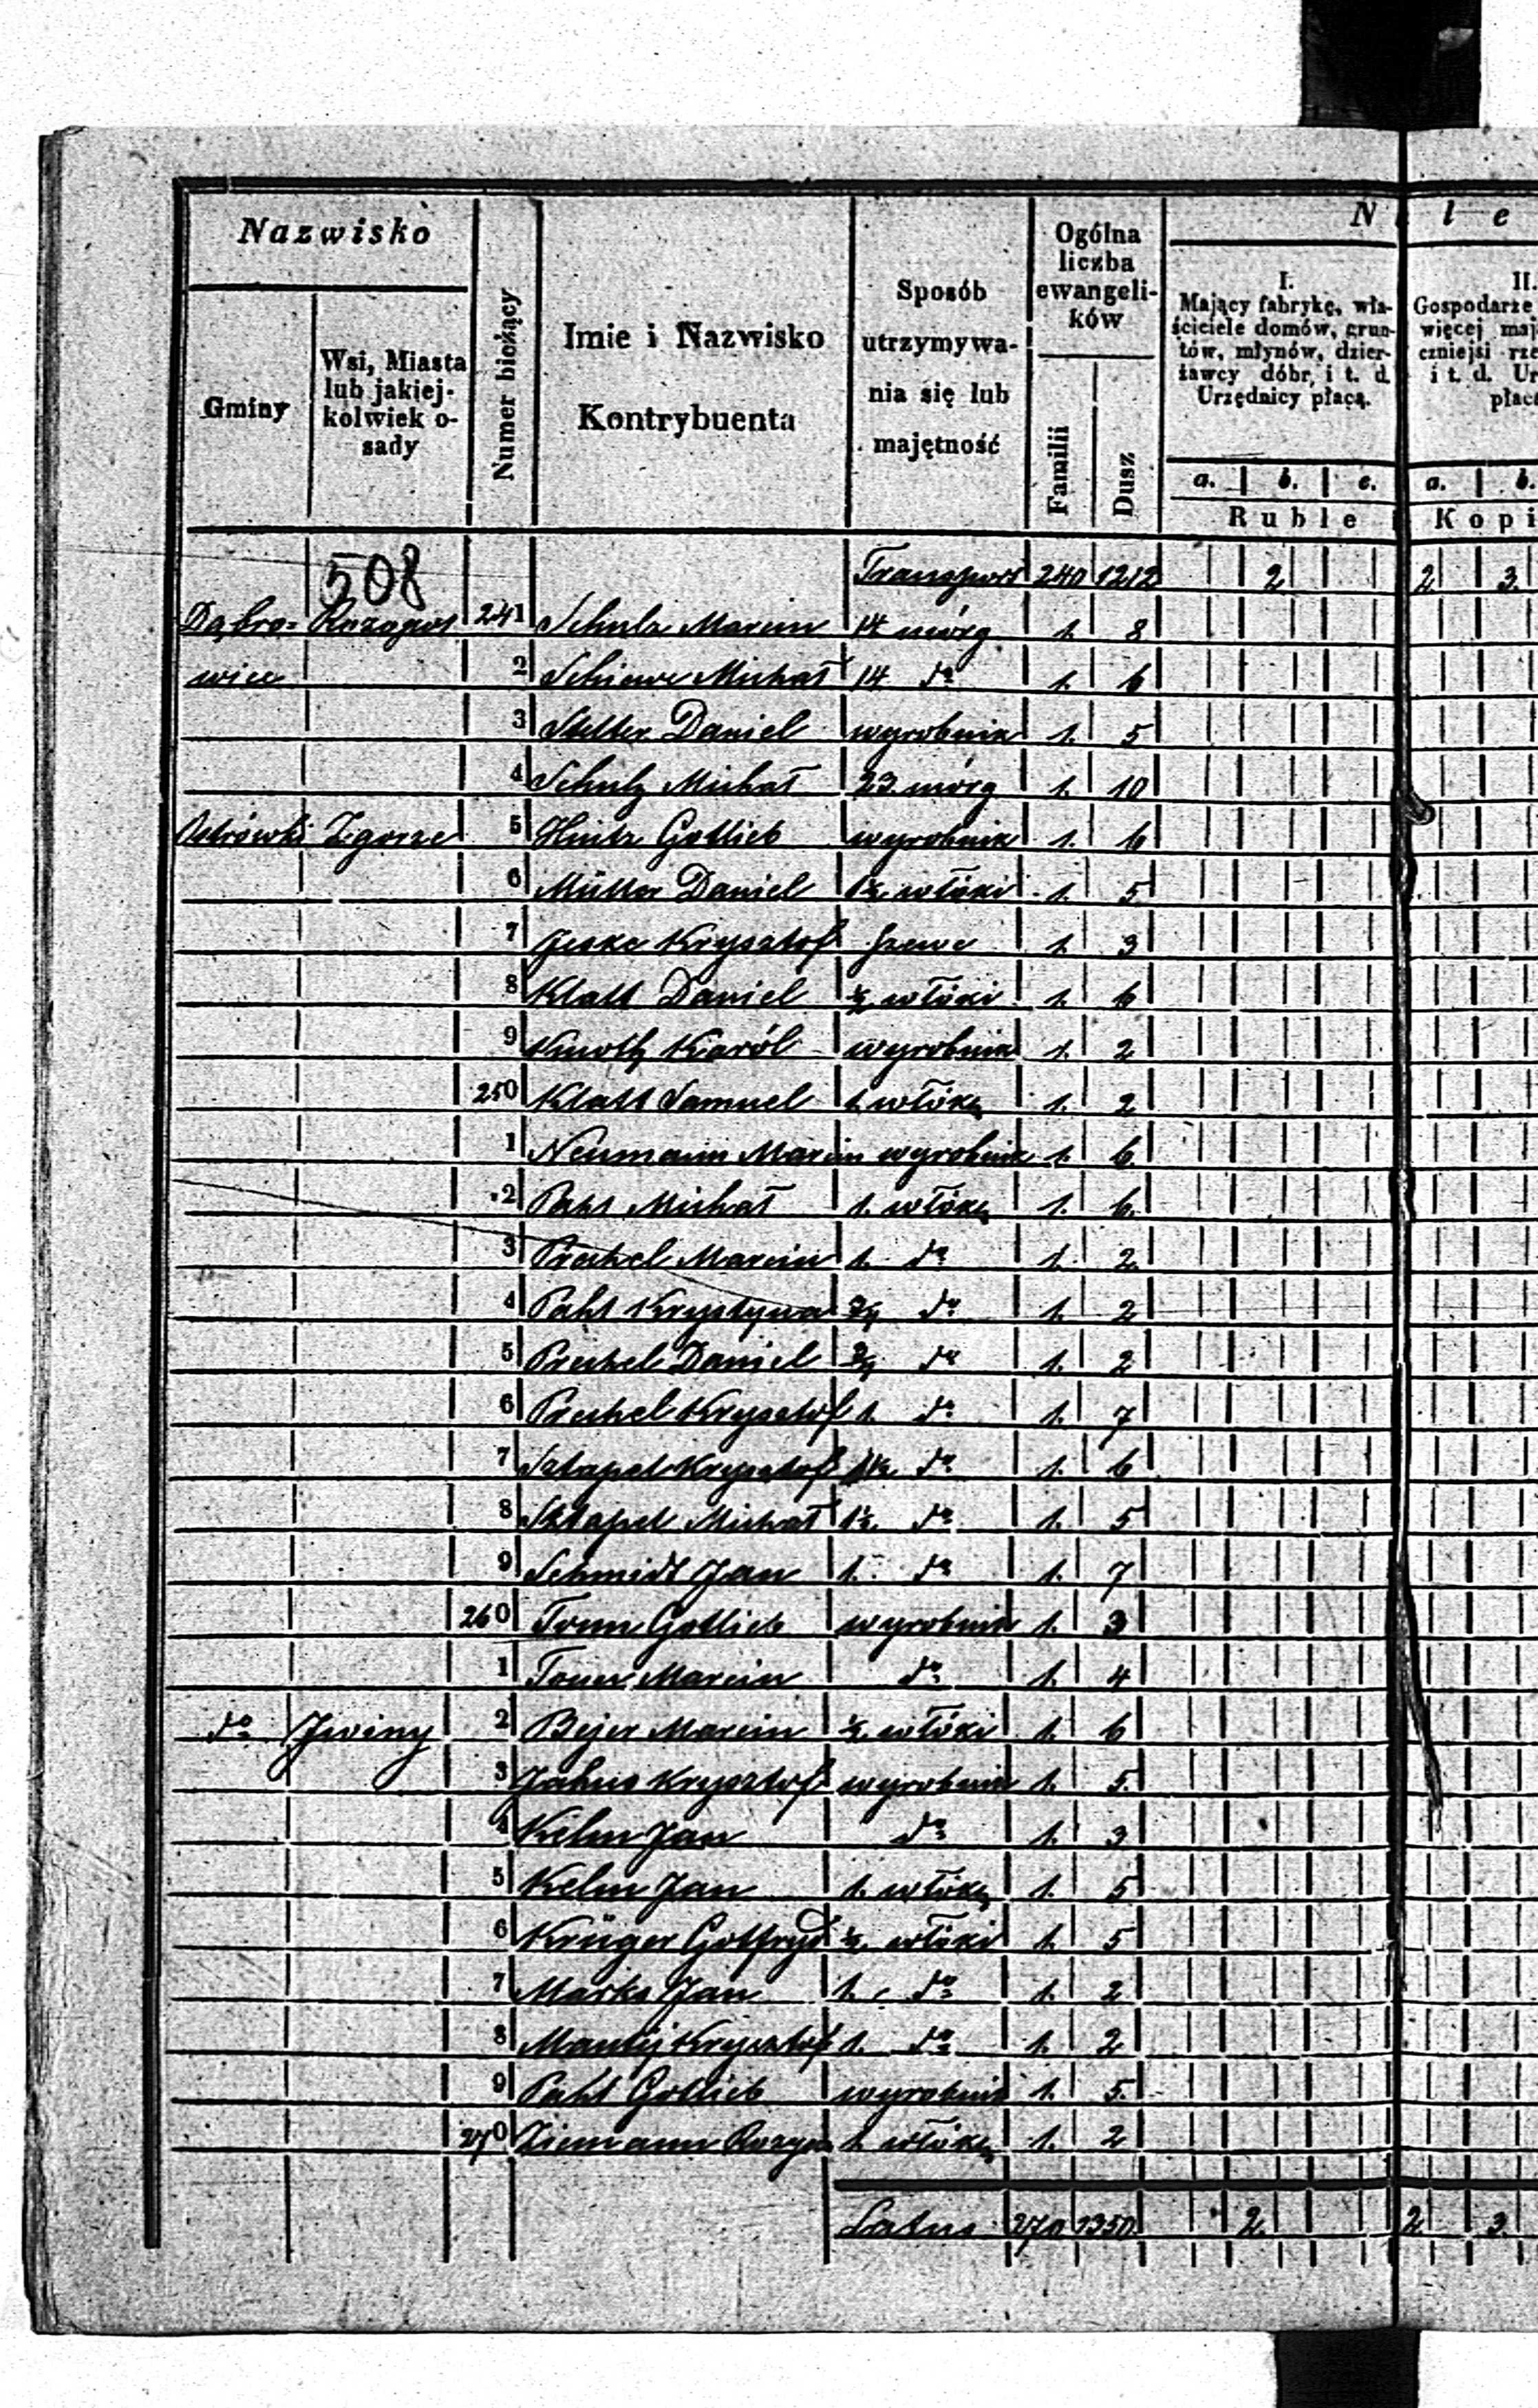 Nazwisko
Gminy
Wsi, Miasta
lub jakiej-
kolwiek o-
sady
Numer bieżący
Imie i Nazwisko
Kontrybuenta
Sposób
utrzymywa-
nia się lub
majętność
Ogólna
liczba
ewangeli-
ków
Familii
Dusz
N l e
I.
Mający fabrykę, wła-
ściciele domów, grun-
tów, młynów, dzier-
żawcy dóbr, i t. d.
Urzędnicy płacą.
II.
Gospodarze
więcej maj
czniejsi rze
i t. d. Ur
płacą
a. b. c. a. b.
Ruble Kopi
508 Transport 240 1212 2 2 3.
Dąbro= 241 Schulz Marcin 14 mórg 1. 8
wice 2 Michał 14 do 1. 6
3 Daniel wyrobnik 1. 5
4 Schulz Michał 23 mórg 1. 10
Ostrówki Zgorze 5 Hintz Gotlieb wyrobnik 1. 6
6 Müller Daniel 1½ włóki 1. 5
7 Jeske Krysztof szewc 1. 3
8 Klatt Daniel ½ włóki 1. 6
9 Knoth Karól wyrobnik 1. 2
250 Klatt Samuel 1. włókę 1. 2
1 Neumann Marcin wyrobnik 1. 6
2 Paht Michał 1. włókę 1. 6.
3 Prechel Marcin 1. do 1. 2.
4 Paht Krystyna do 1. 2
5 Prechel Daniel do 1. 2
6 Prechel Krysztof 1. do 1. 7
7 Sztapel Krysztof 1½ do 1. 6
8 Sztapel Michał 1½ do 1. 5
9 Schmidt Jan 1. do 1. 7
260 Tonn Gotlieb wyrobnik 1. 3
1 Tonn Marcin do 1. 4
do Zwiny 2 Bejer Marcin ½ włóki 1. 6
3 Jahns Krysztof wyrobnik 1. 5.
4 Kelm Jan do 1. 3
5 Kelm Jan 1. włókę 1. 5
6 Krüger Gotfryd ½ włóki 1. 5
7 Marks Jan 1. do 1. 2
8 Mantej Krysztof 1. do 1. 2
9 Paht Gotlieb wyrobnik 1. 5.
270 Ziemann 1. włókę 1. 2
Latus 270 1350 2. 2 3.